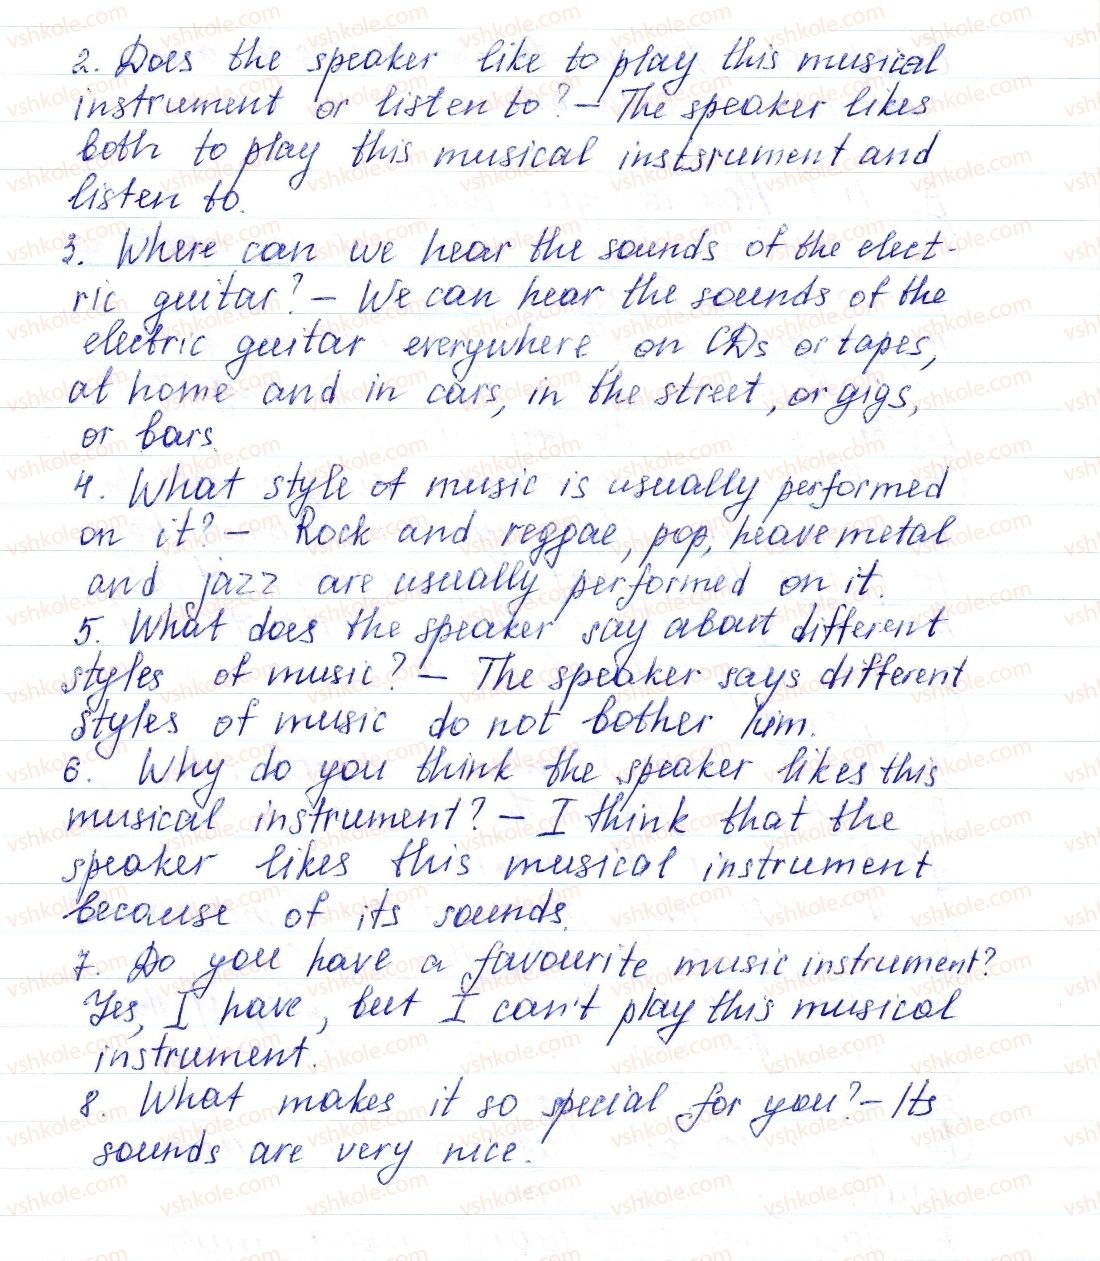 2. Does the speaker like to play this musical
instrument or listen to? – The speaker likes
both to play this musical instsrument and
listen to.
3. Where can we hear the sounds of the elect-
ric guitar? – We can hear the sounds of the
electric guitar everywhere, on CDs or tapes,
at home and in cars, in the street, or gigs,
or bars.
4. What style of music is usually performed
on it? – Rock and reggae, pop, heave metal
and jazz are usually performed on it.
5. What does the speaker say about different
styles of music? – The speaker says different
styles of music do not bother him.
6. Why do you think the speaker likes this
musical instrument? – I think that the
speaker likes this musical instrument
because of its sounds.
7. Do you have a favourite music instrument?
Yes, I have, but I can't play this musical
instrument.
8. What makes it so special for you? – Its
sounds are very nice.